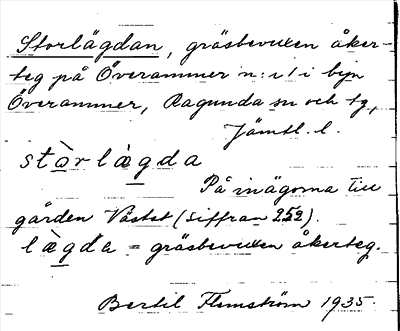 Storlägdan, gräsbevuxen åker-
teg på Överammer n:r 1 i byn
Överammer, Ragunda sn och tg,
Jämtl. l.
stò̱rlà̱gda
På inägorna till
gården Västat (siffran 252).
là̱gda = gräsbevuxen åkerteg.
Bertil Flemström 1935.